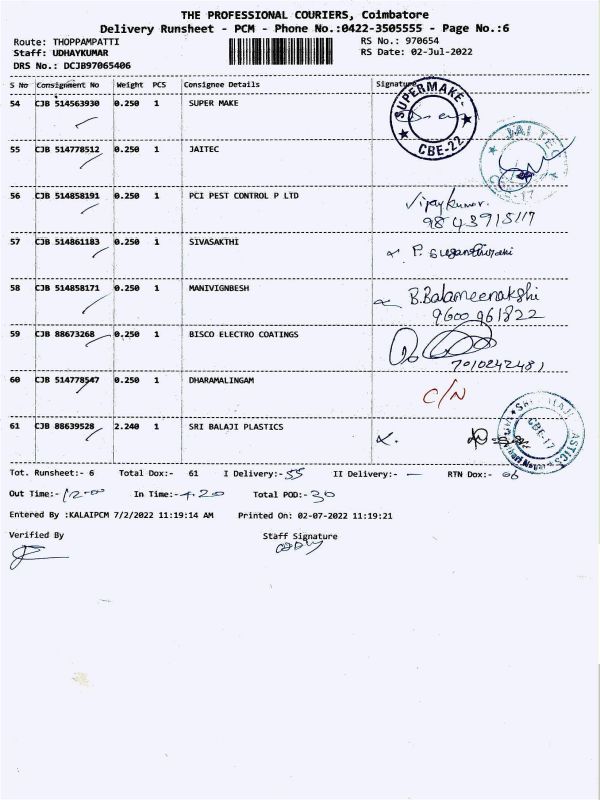 THE PROFESSIONAL COURIERS, Coimbatore
Delivery Runsheet - PCM - Phone No.:0422-3505555 - Page No.:6
Route: THOPPAMPATTI RS No.: 970654
Staff: UDHAYKUMAR RS Date: 02-Jul-2022
DRS No.: DCJB97065406
S No Consignment No Weight PCS Consignee Details Signature
54 CJB 514563930 0.250 1 SUPER MAKE SUPERMAKE CBE-22
55 CJB 514778512 0.250 1 JAITEC JAI TEC
56 CJB 514858191 0.250 1 PCI PEST CONTROL P LTD Vijaykumar.
9843915117
57 CJB 514861183 0.250 1 SIVASAKTHI
58 CJB 514858171 0.250 1 MANIVIGNBESH B.Balameenakshi
9600 961822
59 CJB 88673268 0.250 1 BISCO ELECTRO COATINGS
7010242481
60 CJB 514778547 0.250 1 DHARAMALINGAM C/N
61 CJB 88639528 2.240 1 SRI BALAJI PLASTICS CBE-17
Tot. Runsheet:- 6 Total Dox:- 61 I Delivery:- 55 II Delivery:- — RTN Dox:- 06
Out Time:- 12-00 In Time:- 4.20 Total POD:- 30
Entered By :KALAIPCM 7/2/2022 11:19:14 AM Printed On: 02-07-2022 11:19:21
Verified By Staff Signature